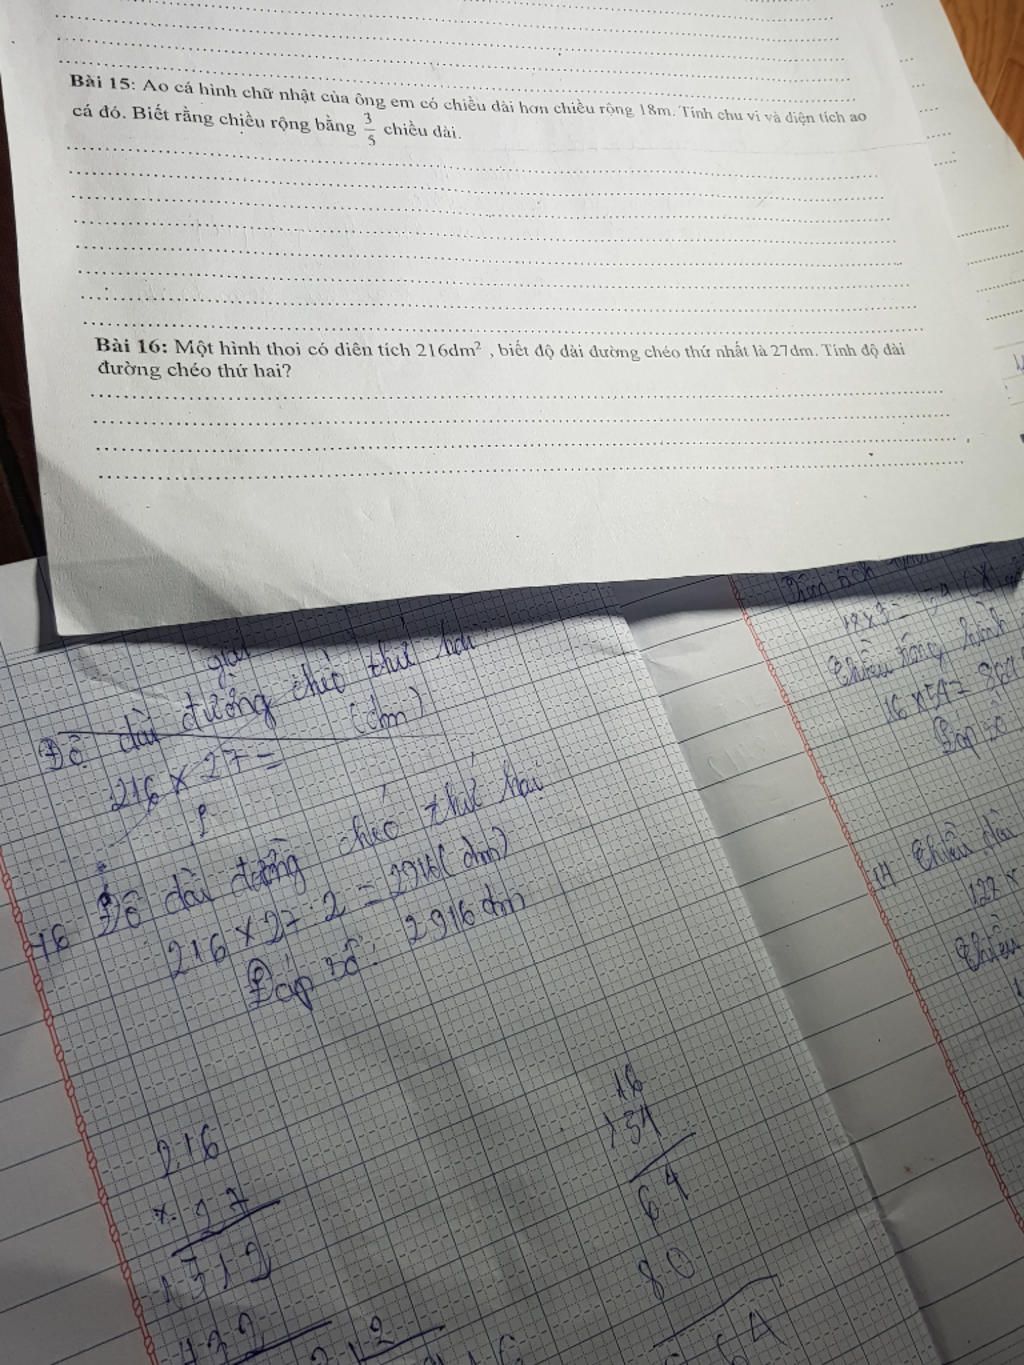 Bài 15: Ao cá hình chữ nhật của ông em có chiều dài hơn chiều rộng 18m. Tính chu vi và diện tích ao
cá đó. Biết rằng chiều rộng bằng 3/5 chiều dài.
Bài 16: Một hình thoi có diên tích 216dm² , biết độ dài đường chéo thứ nhất là 27dm. Tính độ dài
đường chéo thứ hai?
giải
Độ dài đường chéo thứ hai
216 x 27 = (dm)
16 Độ dài đường chéo thứ hai
216 x 27 : 2 = 2916 (dm)
Đáp số: 2916 dm
216
x 27
1512
432
16
64
80
64
Chiều rộng hình
16 x 54 = 864
Đáp số
14 Chiều dài
127 x
Chiều